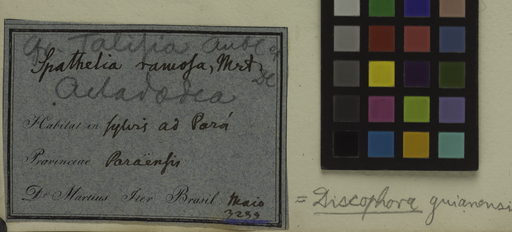 Talisia Aubl
Spathelia ramosa, Mrt.
Habitat in sylvis ad Pará
Provinciae Paraënsis
Dr. Martius Iter Brasil. Maio
3299
= Discophora guianensi